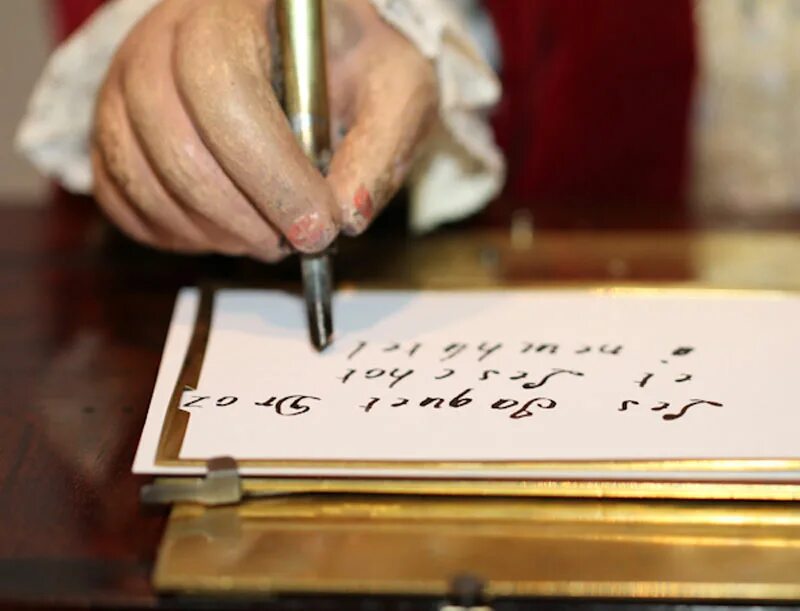 Les Jaquet Droz
et Leschot
a neuchâtel